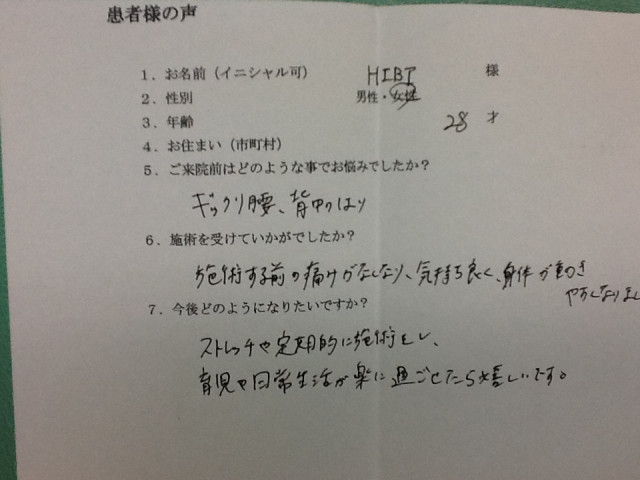 患者様の声
1．お名前（イニシャル可） HIBI 様
2．性別 男性・女性
3．年齢 28 才
4．お住まい（市町村）
5．ご来院前はどのような事でお悩みでしたか？
ギックリ腰、背中のはり
6．施術を受けていかがでしたか？
施術する前の痛みがなくなり、気持ち良く、身体が動き
やすくなりまし
7．今後どのようになりたいですか？
ストレッチや定期的に施術をし、
育児や日常生活が楽に過ごせたら嬉しいです。